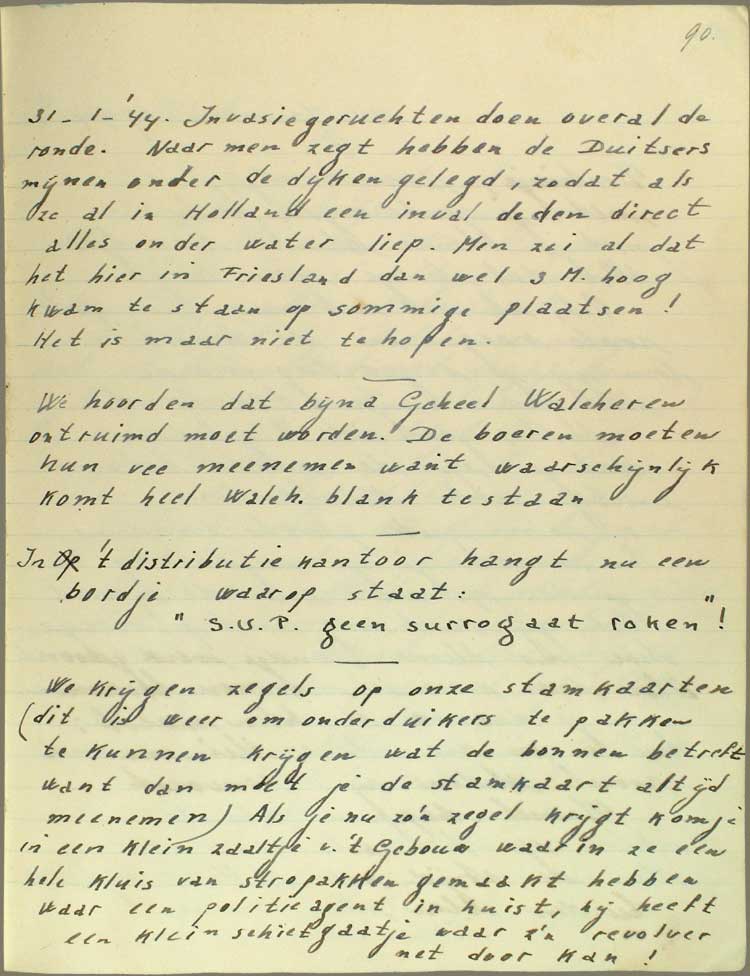 90.
31-1-'44. Invasiegeruchten doen overal de
ronde. Naar men zegt hebben de Duitsers
mijnen onder de dijken gelegd, zodat als
ze al in Holland een inval deden direct
alles onder water liep. Men zei al dat
het hier in Friesland dan wel 3 M. hoog
kwam te staan op sommige plaatsen!
Het is maar niet te hopen.
We hoorden dat bijna Geheel Walcheren
ontruimd moet worden. De boeren moeten
hun vee meenemen want waarschijnlijk
komt heel Walch. blank te staan
In 't distributie kantoor hangt nu een
bordje waarop staat:
" S.V.P. geen surrogaat roken"!
We krijgen zegels op onze stamkaarten
(dit is weer om onderduikers te pakken
te kunnen krijgen wat de bonnen betreft
want dan moet je de stamkaart altijd
meenemen) Als je nu zo'n zegel krijgt kom je
in een klein zaaltje v. 't Gebouw waarin ze een
hele kluis van stropakken gemaakt hebben
waar een politieagent in huist, hij heeft
een klein schietgaatje waar z'n revolver
net door kan!